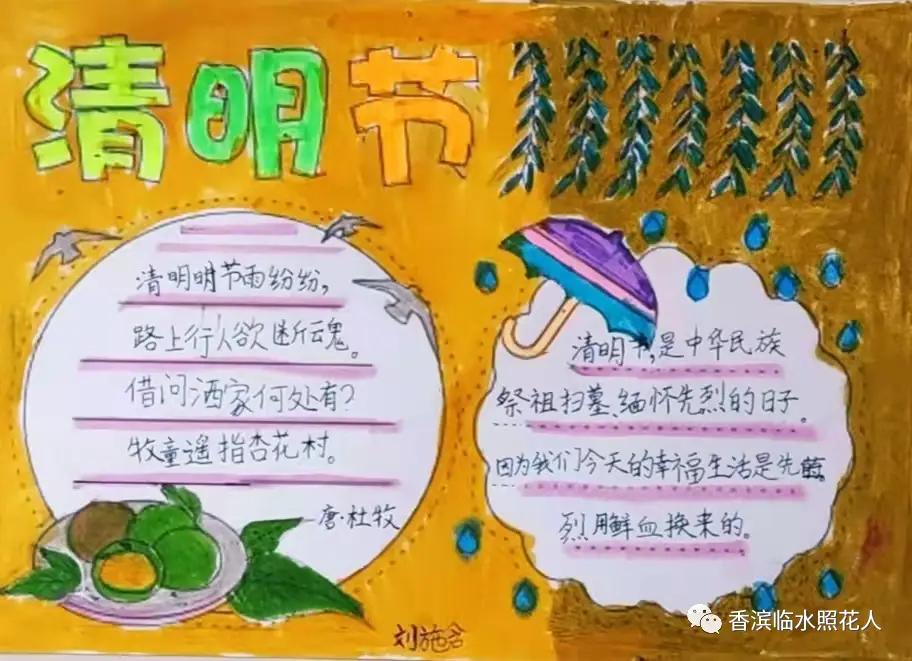 清明节
清明明节雨纷纷,
路上行人欲断魂。
借问酒家何处有?
牧童遥指杏花村。
唐·杜牧
清明节,是中华民族
祭祖扫墓、缅怀先烈的日子。
因为我们今天的幸福生活是先
烈用鲜血换来的。
刘施含
香滨临水照花人